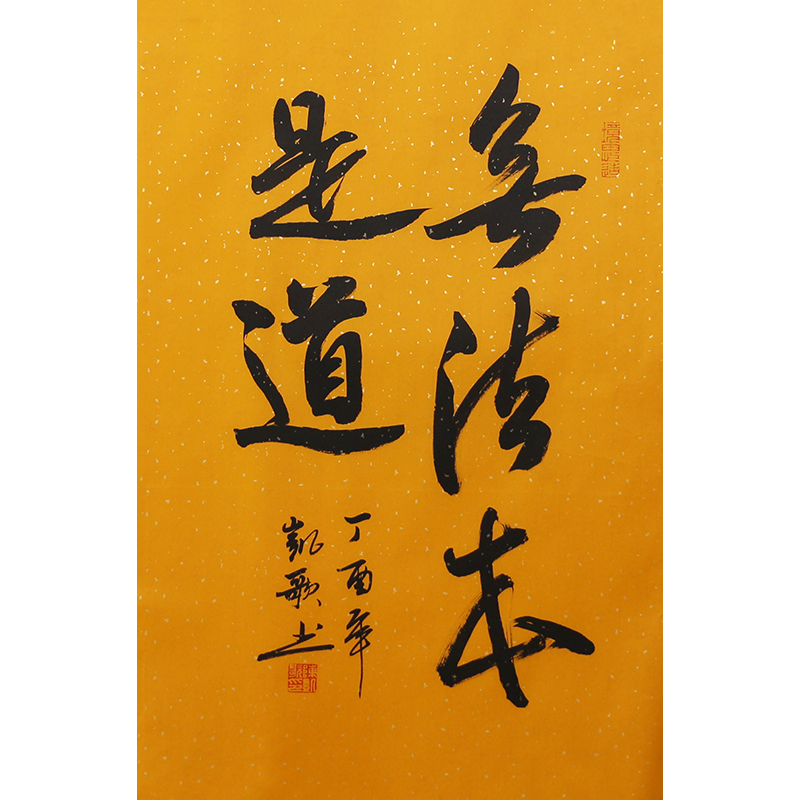 無法本
是道
丁酉年
凱歌书